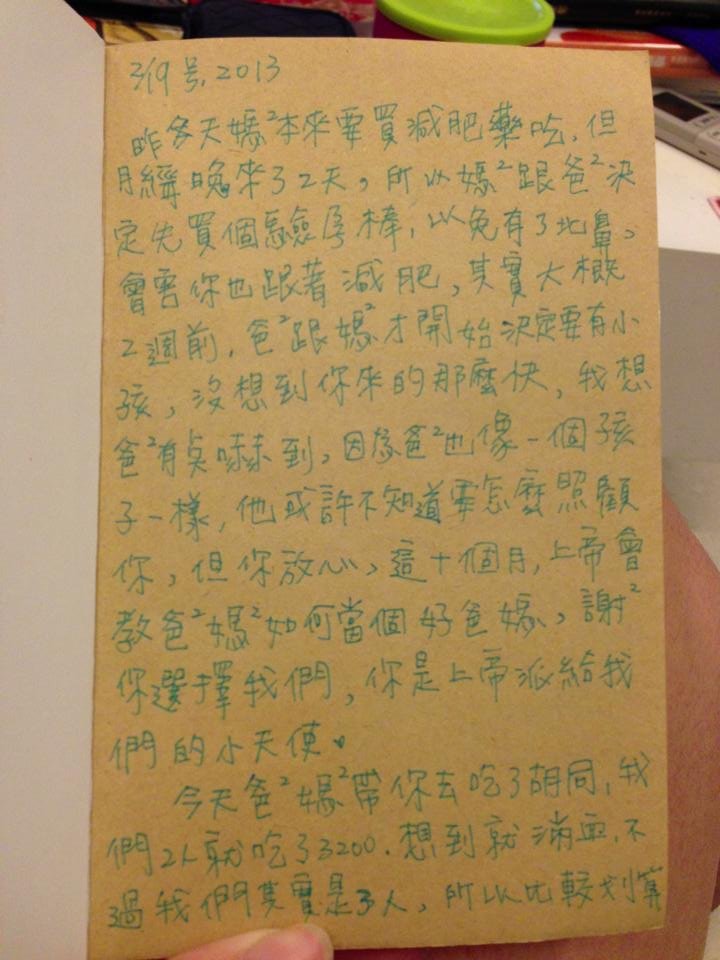 3/19号, 2013
昨冬天媽²本來要買減肥藥吃, 但
月經晚來了2天, 所以媽²跟爸²決
定先買個驗孕棒, 以免有了北鼻,
會害你也跟著減肥, 其實大概
2週前, 爸²跟媽²才開始決定要有小
孩, 沒想到你來的那麼快, 我想
爸²有點嚇到, 因為爸²也像一個孩
子一樣, 他或許不知道要怎麼照顧
你, 但你放心, 這十個月, 上帝會
教爸²媽²如何當個好爸媽, 謝²
你選擇我們, 你是上帝派給我
們的小天使。
今天爸²媽²帶你去吃了胡同, 我
們2人就吃了3200. 想到就滴血, 不
過我們其實是3人, 所以比較划算